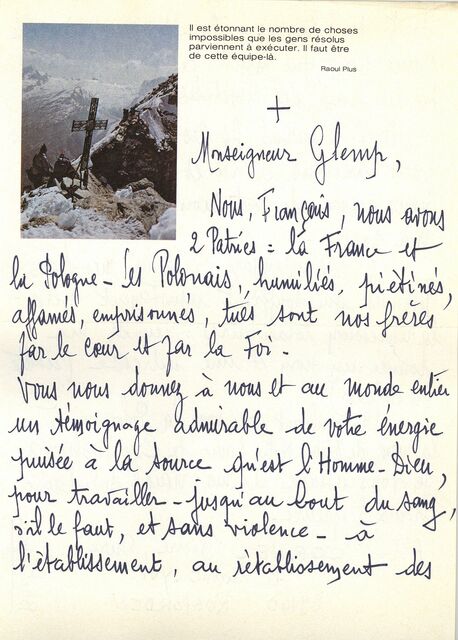 Il est étonnant le nombre de choses
impossibles que les gens résolus
parviennent à exécuter. Il faut être
de cette équipe-là.
Raoul Plus
+
Monseigneur Glemp,
Nous, Français, nous avons
2 Patries = la France et
la Pologne - les Polonais, humiliés, piétinés,
affamés, emprisonnés, tués sont nos frères
par le cœur et par la Foi -
Vous nous donnez à nous et au monde entier
un témoignage admirable de votre énergie
puisée à la source qu'est l'Homme-Dieu,
pour travailler - jusqu'au bout du sang,
s'il le faut, et sans violence - à
l'établissement, au rétablissement des